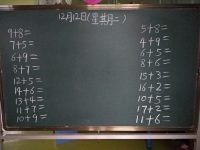 12月12日(星期二)
9+8=
7+5=
6+9=
8+7=
12+5=
14+6=
13+4=
11+7=
10+9=
5+8=
4+9=
6+5=
8+6=
15+3=
16+2=
10+5=
17+2=
11+6=